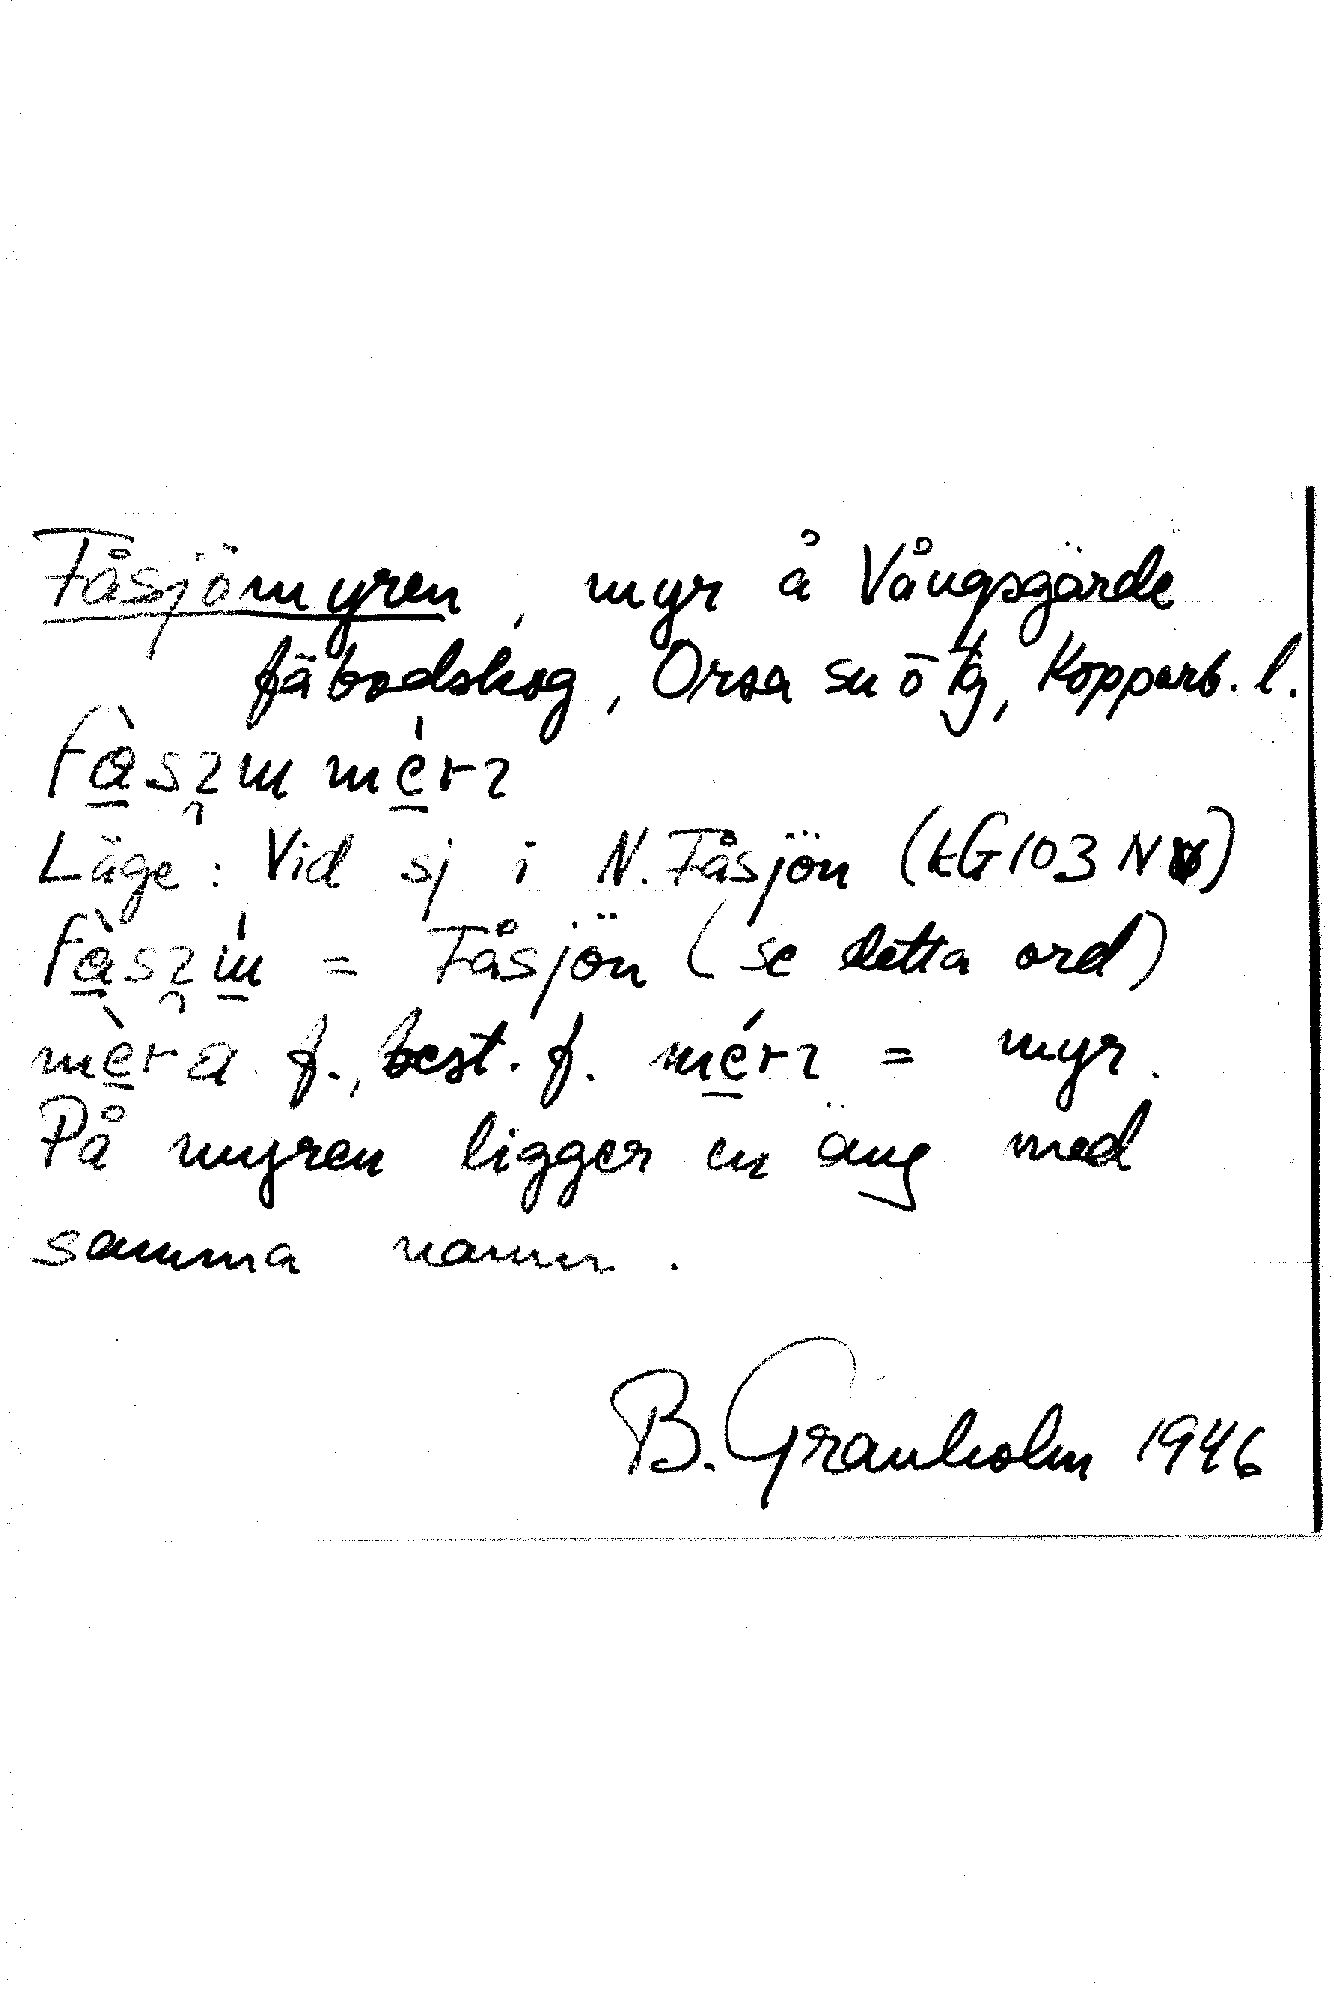 Fåsjömyren, myr å Vångsgärde
fäbodskog, Orsa sn o tg, Kopparb. l.
Läge: Vid sj i N. Fåsjön (EG 103 N)
= Fåsjön (se detta ord)
f., best. f. = myr.
På myren ligger en äng med
samma namn.
B. Granholm 1946